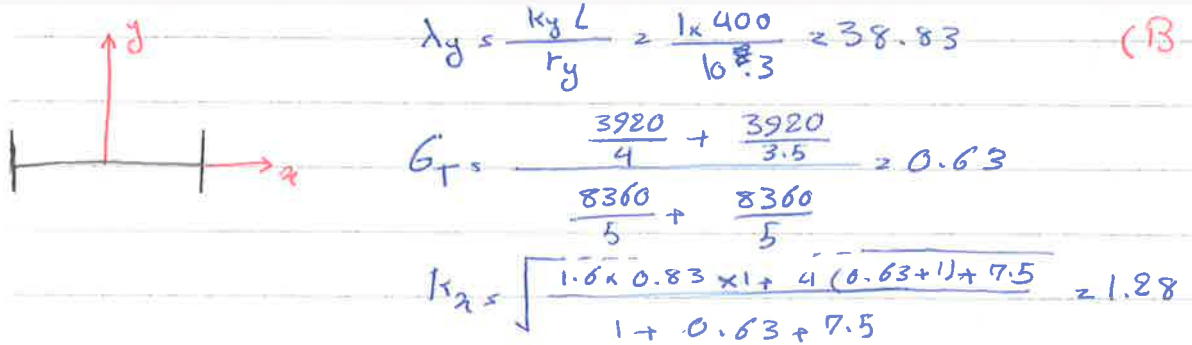 y
λy = ky L / ry = 1 x 400 / 10.3 = 38.83 (B
x
GT = (3920/4 + 3920/3.5) / (8360/5 + 8360/5) = 0.63
kx = √((1.6 x 0.83 x 1 + 4 (0.63+1) + 7.5) / (1 + 0.63 + 7.5)) = 1.28